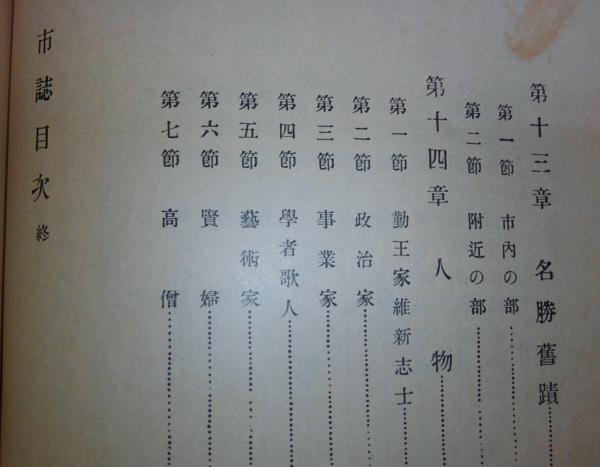 第十三章 名勝舊蹟…………
第一節 市內の部…………
第二節 附近の部…………
第十四章 人物…………
第一節 勤王家維新志士…………
第二節 政治家…………
第三節 事業家…………
第四節 學者歌人…………
第五節 藝術家…………
第六節 賢婦…………
第七節 高僧…………
市誌目次 終